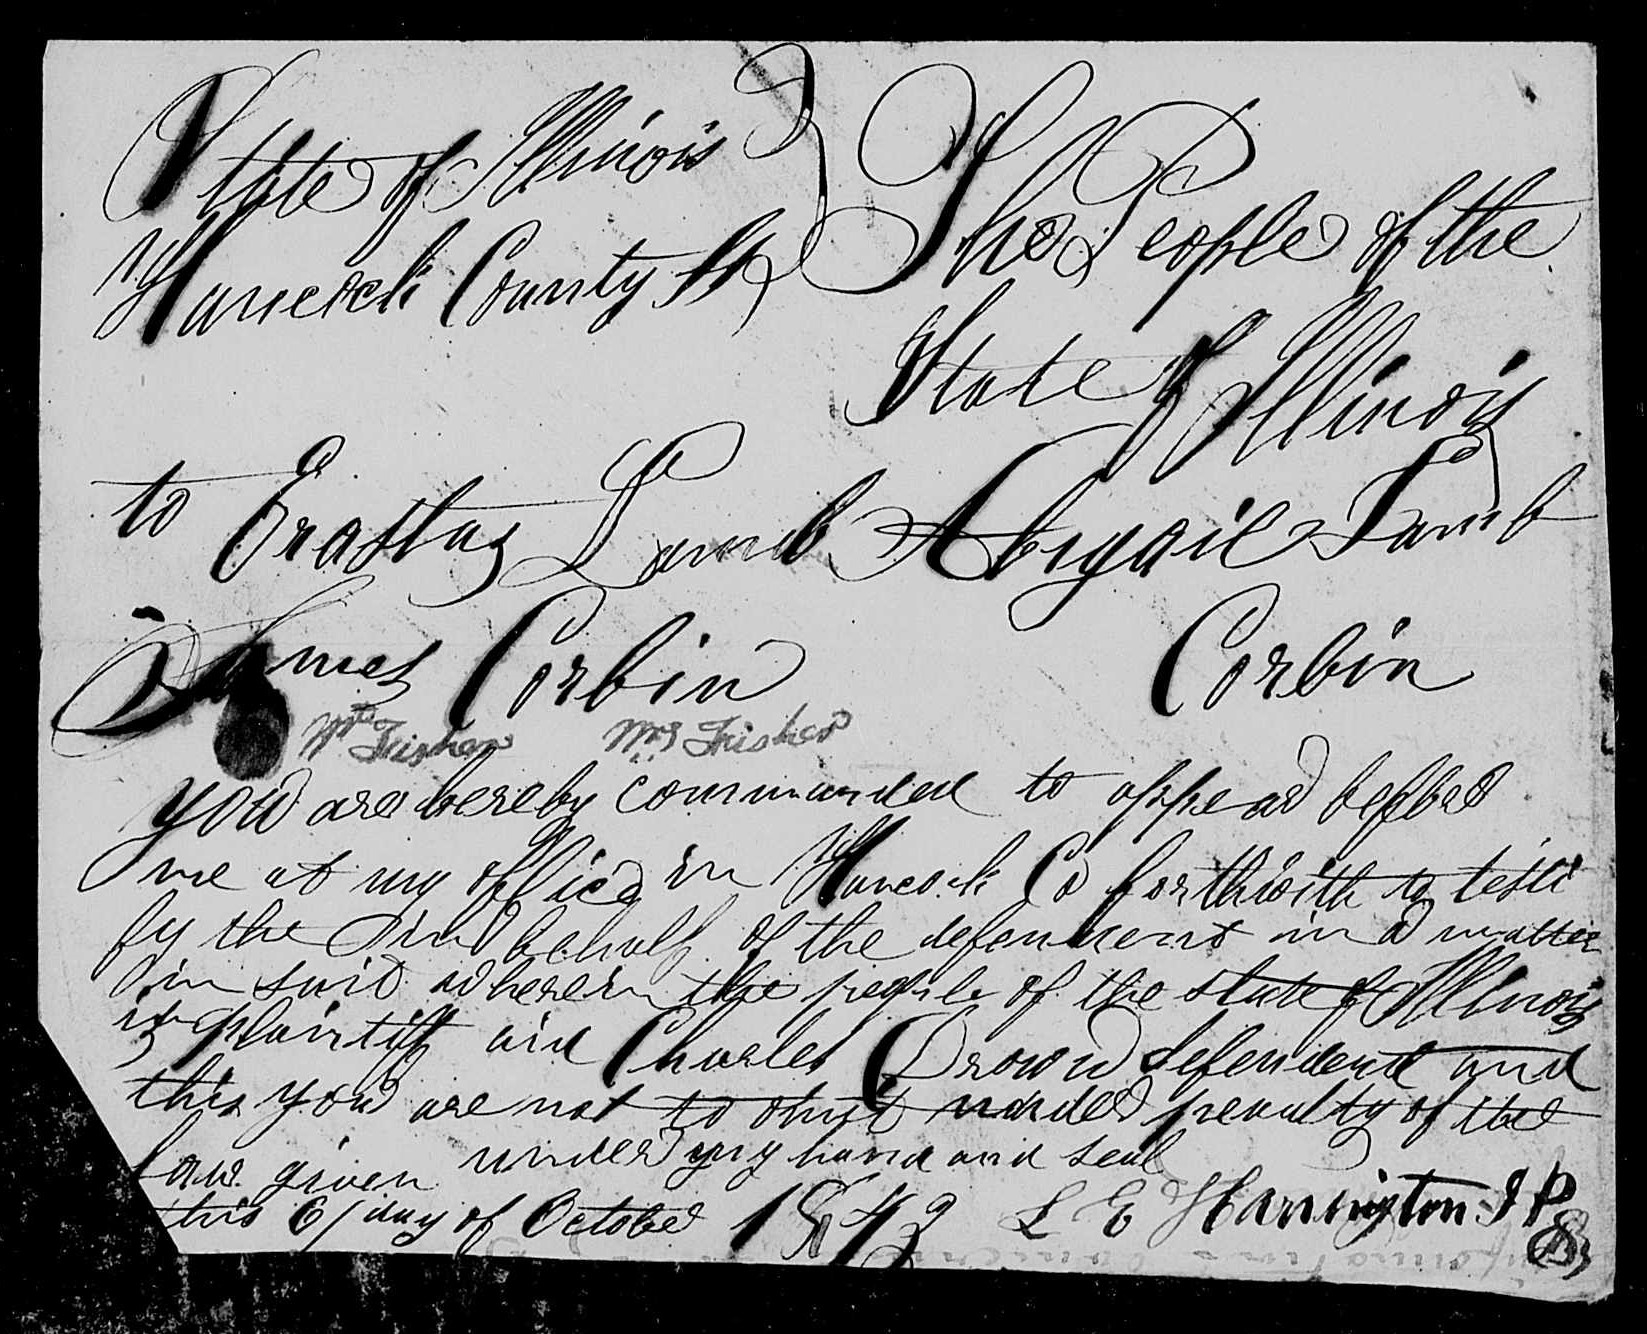 State of Illinois
Hancock County Ss
The People of the
State of Illinois
to Erastus Lamb Abigail Lamb
James Corbin Corbin
Wm Frisher Mrs Frisher
you are hereby commanded to appear before
me at my office in Hancock Co forthwith to testi
fy the in behalf of the defendent in a matter
in suit wherein the people of the state of Illinois
is plaintiff and Charles Drown defendent and
this you are not to omit under penalty of the
law given under my hand and seal
this 6/ day of October 1843 L E Harrington J P